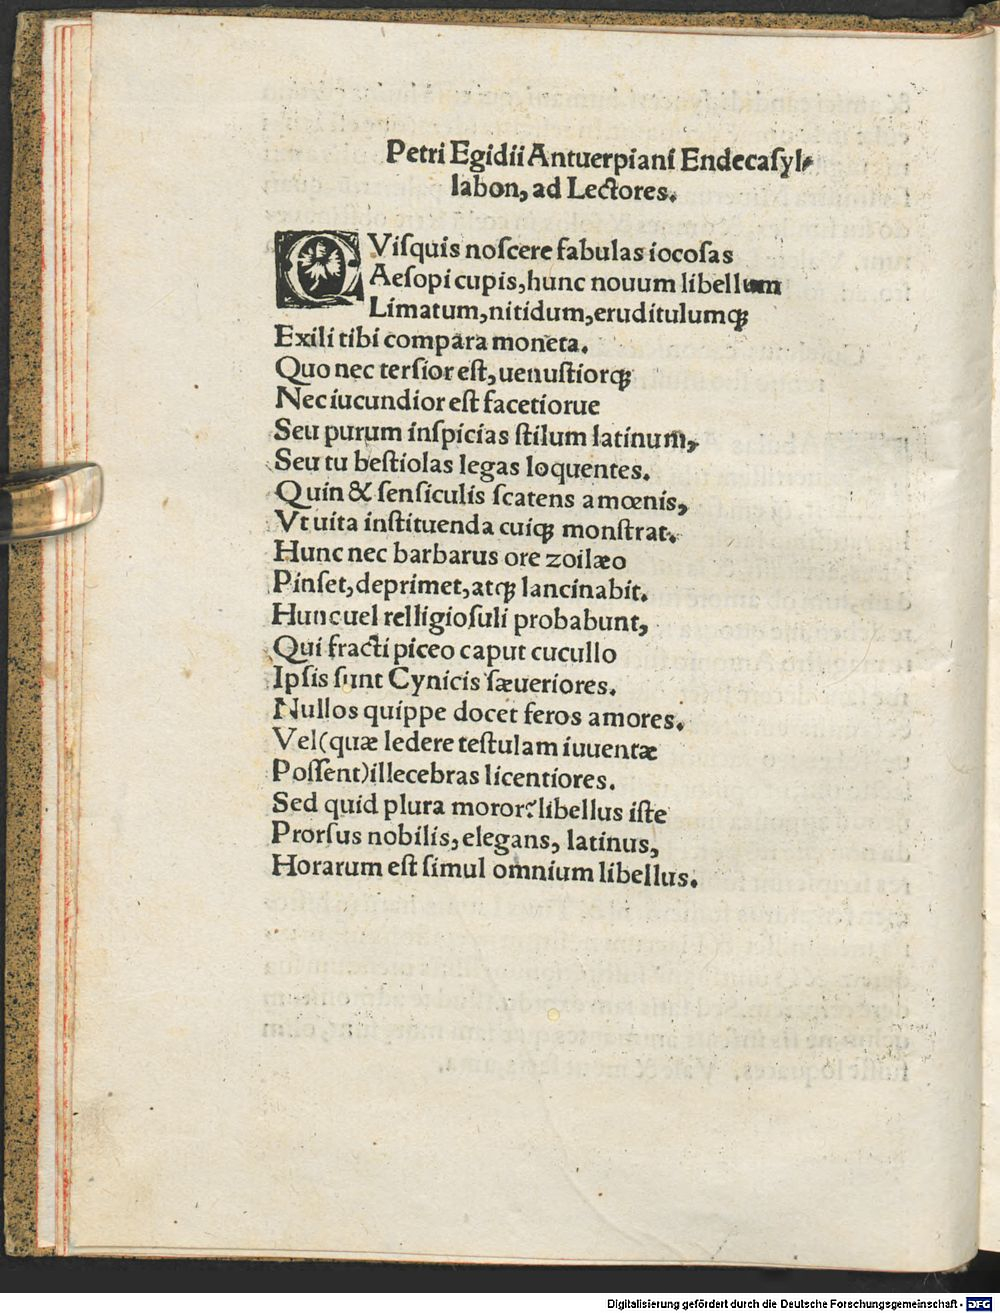 Petri Egidii Antuerpiani Endecaſyl-
labon, ad Lectores.
QViſquis noſcere fabulas iocoſas
Aeſopi cupis, hunc nouum libellum
Limatum, nitidum, eruditulumqꝫ
Exili tibi compara moneta.
Quo nec terſior eſt, uenuſtiorqꝫ
Nec iucundior eſt facetiorue
Seu purum inſpicias ſtilum latinum,
Seu tu beſtiolas legas loquentes.
Quin & ſenſiculis ſcatens amœnis,
Vt uita inſtituenda cuiqꝫ monſtrat.
Hunc nec barbarus ore zoilæo
Pinſet, deprimet, atqꝫ lancinabit.
Hunc uel relligioſuli probabunt,
Qui fracti piceo caput cucullo
Ipſis ſunt Cynicis ſæueriores.
Nullos quippe docet feros amores.
Vel (quæ ledere teſtulam iuuentæ
Poſſent) illecebras licentiores.
Sed quid plura moror? libellus iſte
Prorſus nobilis, elegans, latinus,
Horarum eſt ſimul omnium libellus.
Digitalisierung gefördert durch die Deutsche Forschungsgemeinschaft - DFG